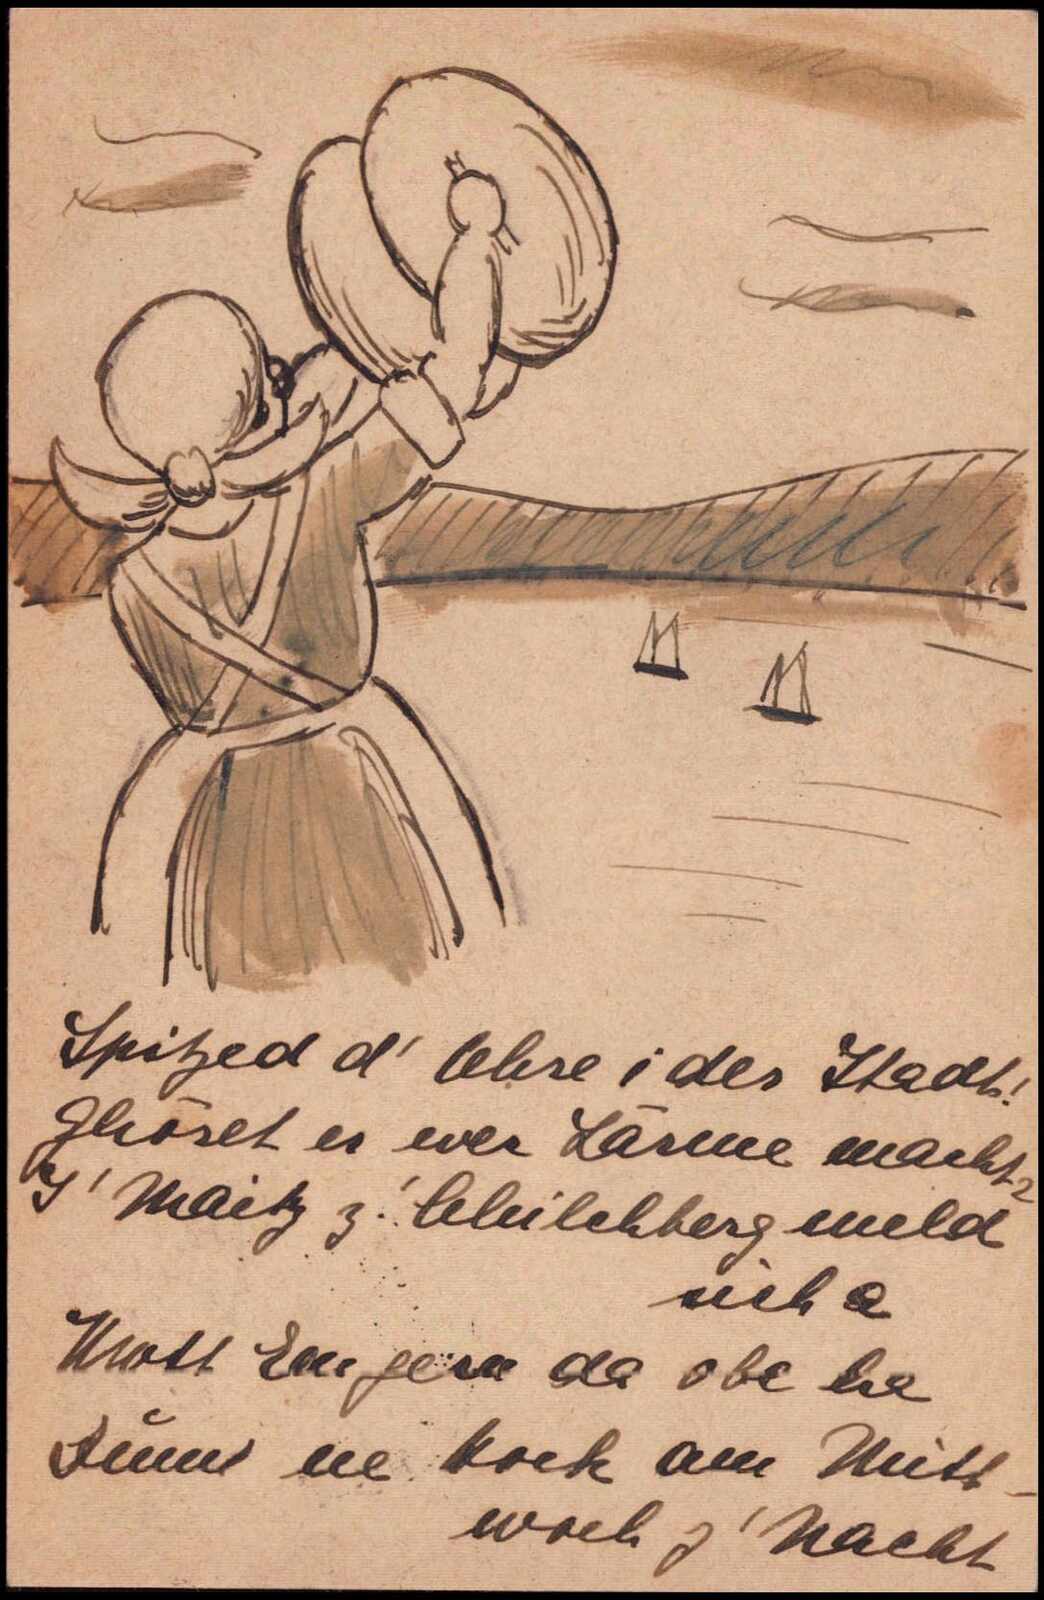 Spitzed d' Ohre i der Stadt!
Ghöret er wer Lärme macht?
S' Maitz z' Chilchberg meld
sich a
Wott Eu gern da obe ha
Zume ne hock am Mitt-
woch z' Nacht